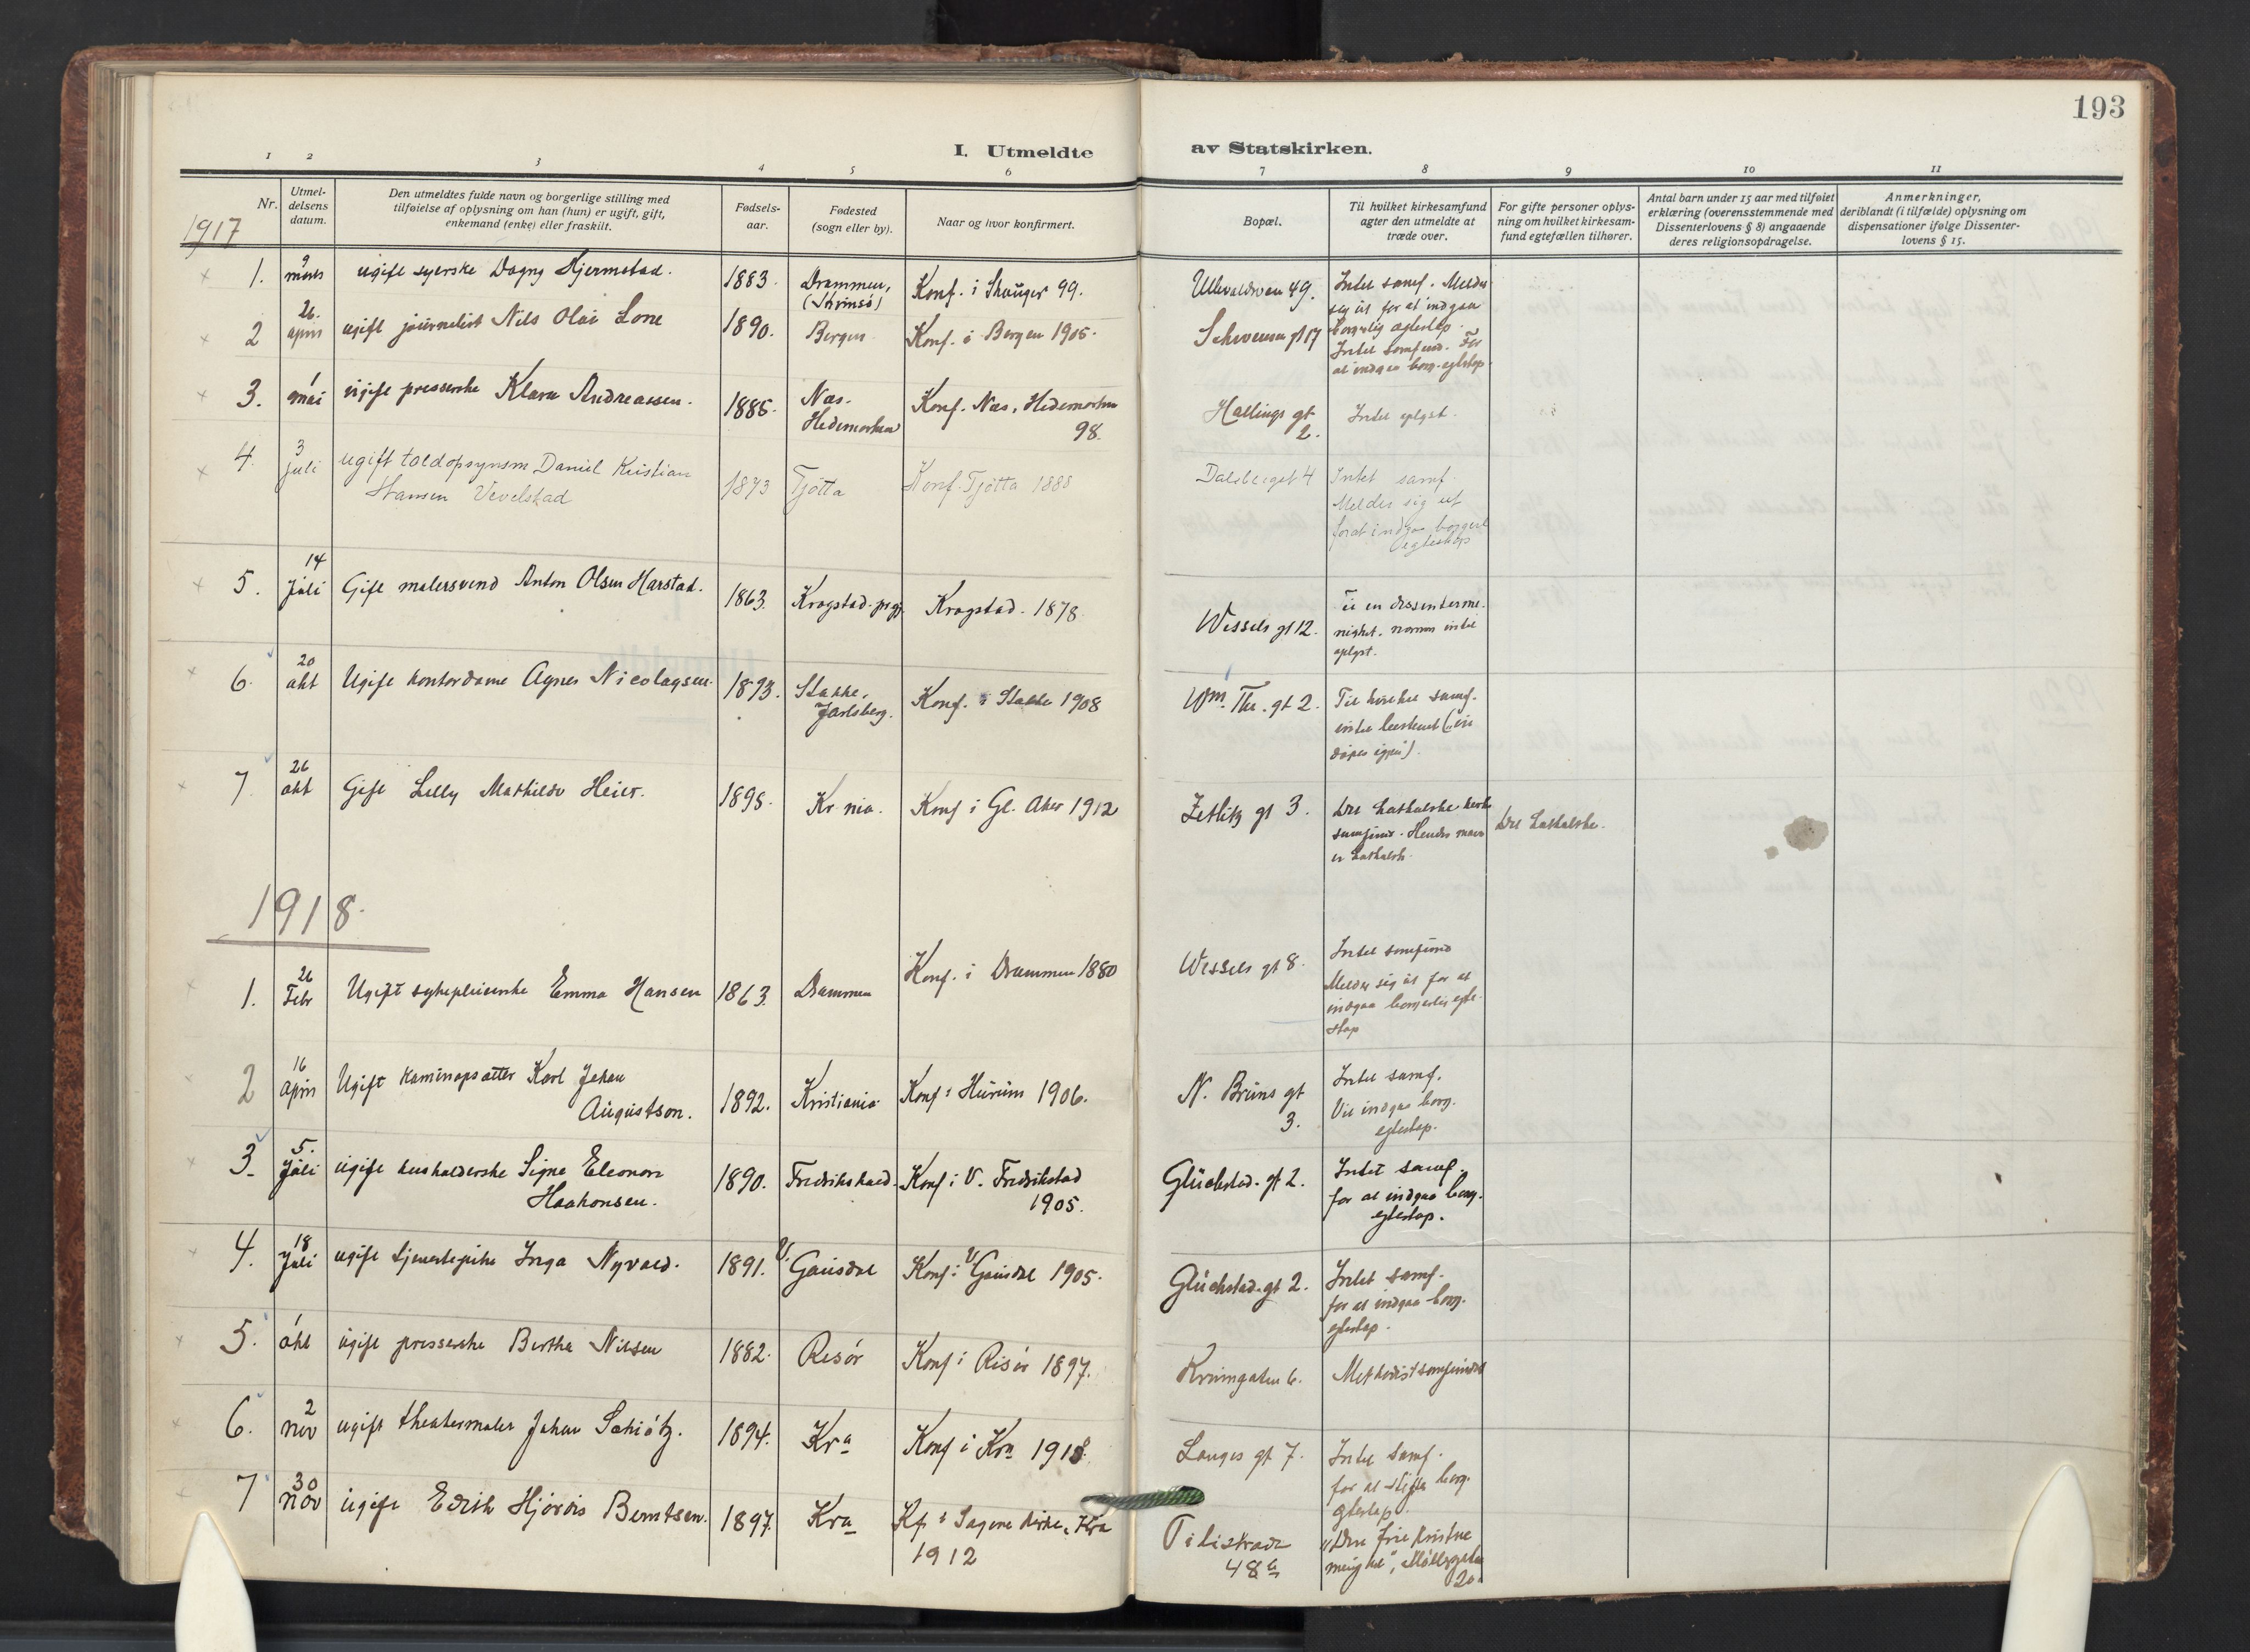 193
I. Utmeldte av Statskirken.
1 2 3 4 5 6 7 8 9 10 11
Nr.
Utmel-
delsens
datum.
Den utmeldtes fulde navn og borgerlige stilling med
tilføielse af oplysning om han (hun) er ugift, gift,
enkemand (enke) eller fraskilt.
Fødsels-
aar.
Fødested
(sogn eller by).
Naar og hvor konfirmert.
Bopæl.
Til hvilket kirkesamfund
agter den utmeldte at
træde over.
For gifte personer oplys-
ning om hvilket kirkesam-
fund egtefællen tilhører.
Antal barn under 15 aar med tilføiet
erklæring (overensstemmende med
Dissenterlovens § 8) angaaende
deres religionsopdragelse.
Anmerkninger,
deriblandt (i tilfælde) oplysning om
dispensationer ifølge Dissenter-
lovens § 15.
1917
1. 9 mars ugift syerske Dagny Hjermstad. 1883. Drammen, Konf. i Skauger 99. 49. Intet samf. Melder
(Strømsø) sig ut for at indgaa
borgerlig egteskap.
2 26. april ugift journalist Nils Olai Lone 1890. Bergen Konf. i Bergen 1905. Schwensen gt 17 Intet samfund. For
at indgaa borg. egteskap.
3. 1 mai ugift presserske Klara Andreassen. 1885. Nes. Konf. Nes, Hedemarken Hallings gt Intet oplyst.
Hedemarken 98. 2.
4. 3 juli ugift toldopsynsm Daniel Kristian 1873 Tjøtta Konf. Tjøtta 1888 4 Intet samf.
Hansen Vevelstad Melder sig ut
for at indgaa borgerl
egteskap
5. 14 juli Gift malersvend Anton Olsen Harstad. 1863. Kragstad prgj. Kragstad. 1878. Wessels gt 12. Til en dissenterme-
nighet. navnet intet
oplyst.
6. 20 okt Ugift kontordame Agnes Nicolaysen. 1893. Stokke, Konf. i Stokke 1908 Wm. Thr. gt 2. Til hvilket samf.
Jarlsberg. intet bestemt
7. 26 okt Gift Lelly Mathilde Heier. 1898. Kr nia. Konf i Gl. Aker 1912 Zetlitz gt 3. Det katholske kirke Det katholske.
samfund. Hendes mand
er katholsk.
1918.
1. 26 Febr Ugift sykepleierske Emma Hansen 1863. Drammen Konf. i Drammen 1880 Wessels gt 8. Intet samfund
Melder sig ut for at
indgaa borgerlig egte-
skap
2 16 april Ugift kaminopsætter Karl Johan 1892. Kristiania Konf i Hurum 1906. N. Bruns gt Intet samf.
Augustson. 3. Vil indgaa borg.
egteskap.
3. 5. juli ugift husholderske Signe Eleonora 1890. Fredrikshald. Konf i V. Fredrikstad Glückstad. gt 2. Intet samf.
Haakonsen. 1905. for at indgaa borg.
egteskap.
4. 18 juli ugift tjenestepike Inga Nyvold. 1891. V. Gausdal Konf i V Gausdal 1905. Glückstad. gt 2. Intet samf.
for at indgaa borg.
egteskap.
5. 1 okt ugift presserske Berthe Nilsen 1882. Risør Konf i Risør 1897. 6. Methodistsamfundet
6. 2 nov ugift theatermaler Johan Schiøtz. 1894. Kra Konf i Kra Langes gt 7. Intet samf.
for at stifte borg.
egteskap.
7 30 nov ugift Edith Hjørdis Berntsen. 1897. Kra Kf i Sagene kirke, Kra "Den frie kristne
1912 48 menighet", Møllergaten
20.